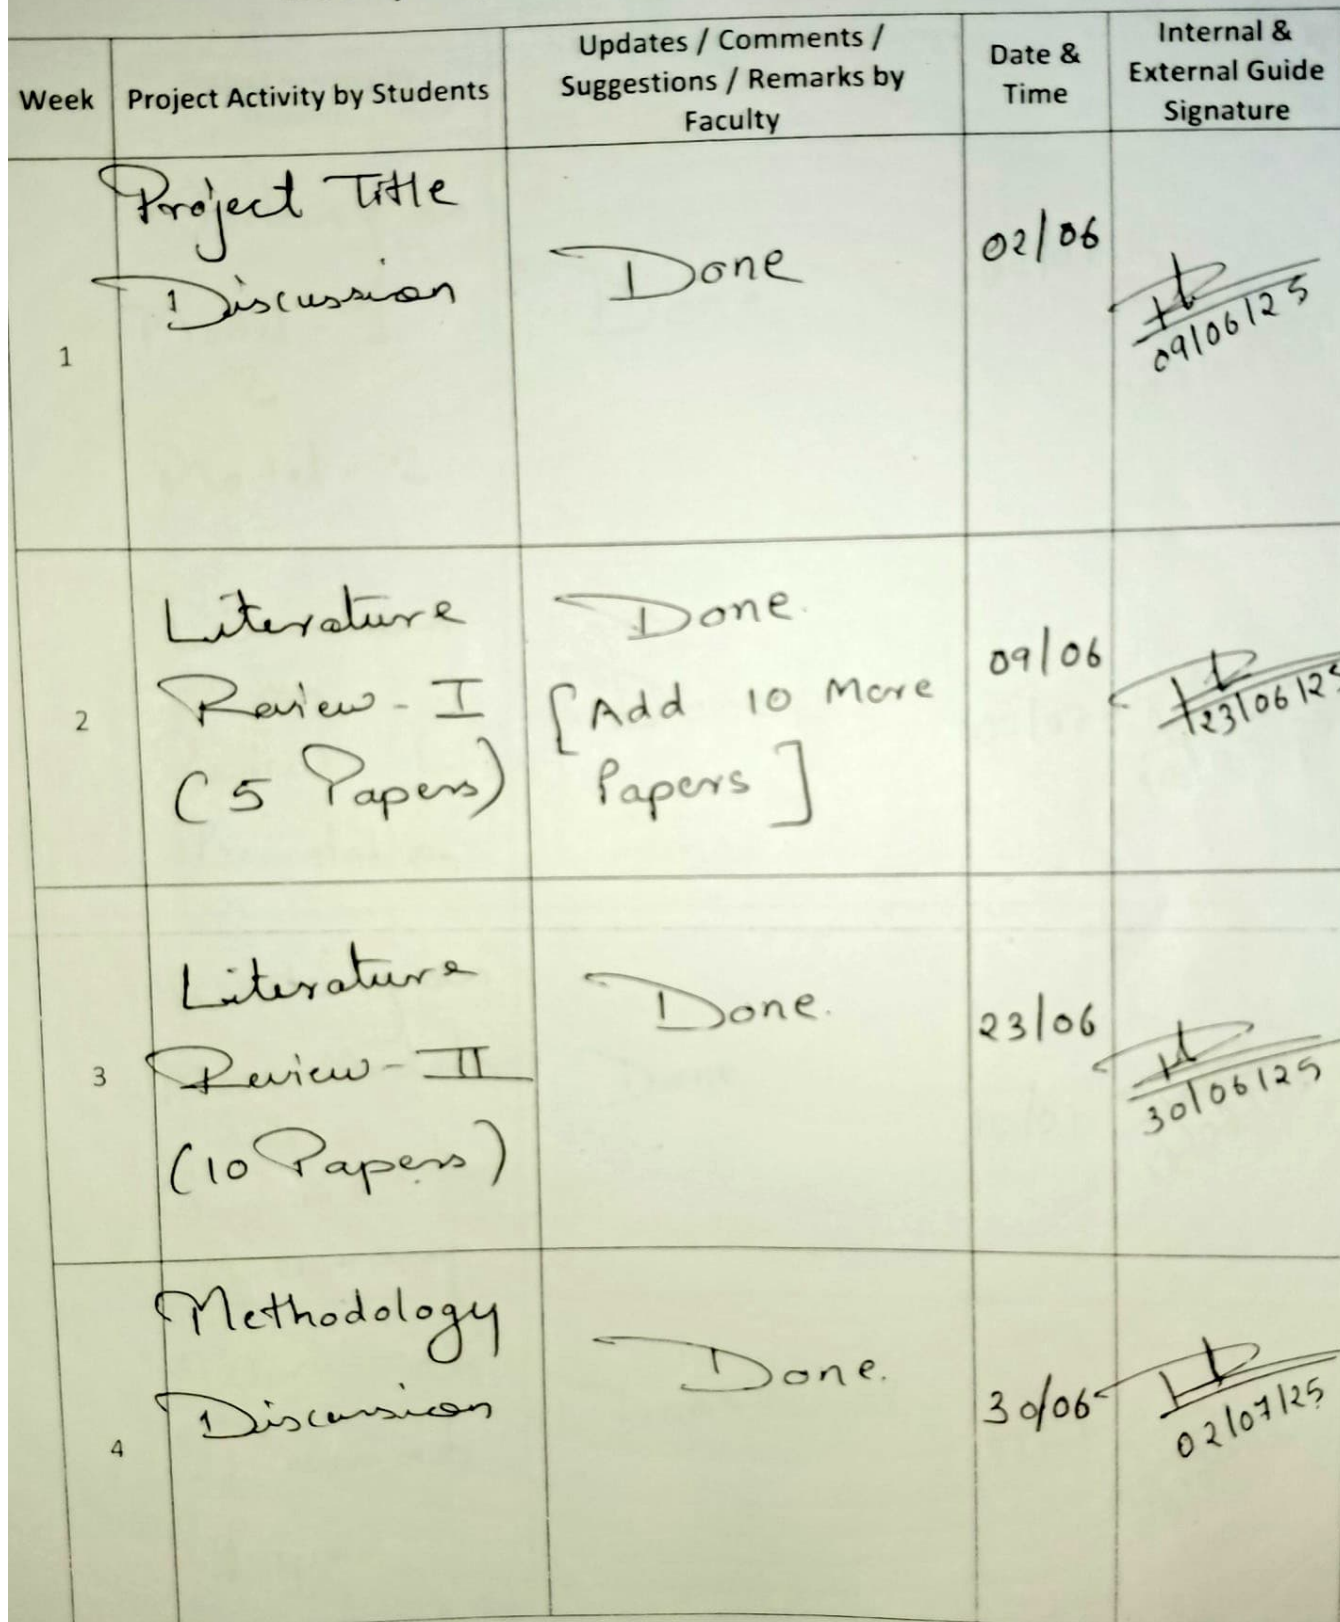 Week
Project Activity by Students
Updates / Comments /
Suggestions / Remarks by
Faculty
Date &
Time
Internal &
External Guide
Signature
1
Project Title
Discussion
Done
02/06
09/06/25
2
Literature
Review - I
(5 Papers)
Done.
[Add 10 More
Papers]
09/06
23/06/25
3
Literature
Review - II
(10 Papers)
Done.
23/06
30/06/25
4
Methodology
Discussion
Done.
30/06
02/07/25